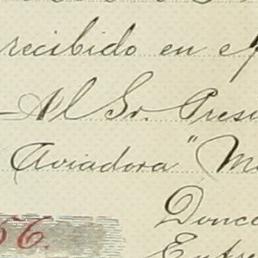 recibido en
Al Sr. Presi
Aviadora "M
Donce
56.